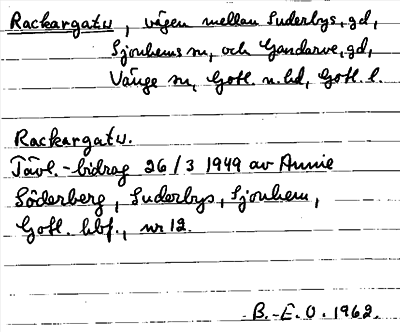 Rackargatu, vägen mellan Suderbys, gd,
Sjonhems sn, och Gandarve, gd,
Vänge sn, Gotl. n. hd, Gotl. l.
Rackargatu.
Tävl.-bidrag 26/3 1949 av Annie
Söderberg, Suderbys, Sjonhem,
Gotl. hbf., nr 12.
B.-E. O. 1962.